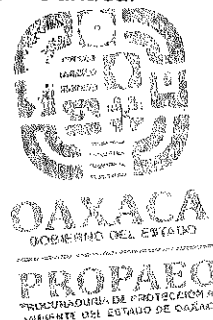 OAXACA
GOBIERNO DEL ESTADO
PROPAEO
PROCURADURÍA DE PROTECCIÓN A
AMBIENTE DEL ESTADO DE OAXAC